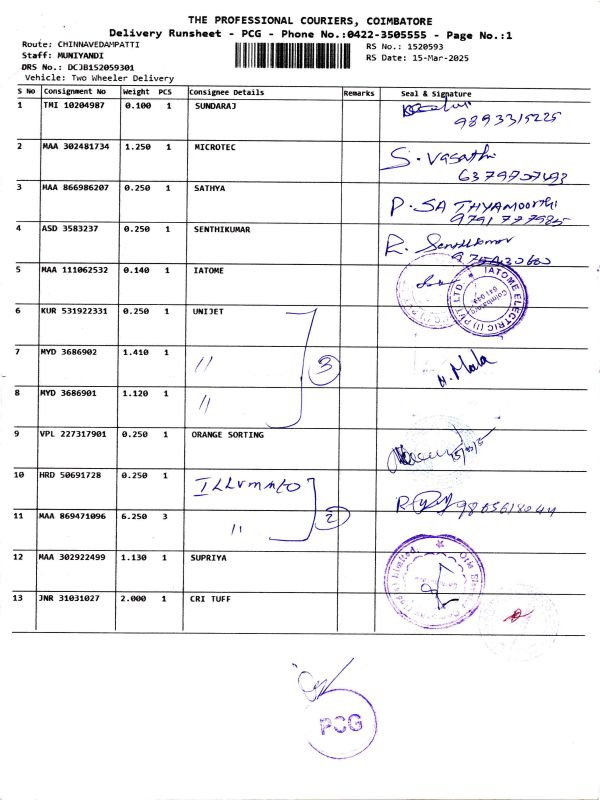 THE PROFESSIONAL COURIERS, COIMBATORE
Delivery Runsheet - PCG - Phone No.:0422-3505555 - Page No.:1
Route: CHINNAVEDAMPATTI
RS No.: 1520593
Staff: MUNIYANDI
RS Date: 15-Mar-2025
DRS No.: DCJB152059301
Vehicle: Two Wheeler Delivery
S No Consignment No Weight PCS Consignee Details Remarks Seal & Signature
1 TMI 10204987 0.100 1 SUNDARAJ
9893315225
2 MAA 302481734 1.250 1 MICROTEC S. Vasathi
6379707493
3 MAA 866986207 0.250 1 SATHYA P. SATHYAMOORTHI
9791777985
4 ASD 3583237 0.250 1 SENTHIKUMAR R. Senthilkumar
5 MAA 111062532 0.140 1 IATOME IATOME ELECTRIC (I) PVT LTD. Coimbatore 641 049
6 KUR 531922331 0.250 1 UNIJET
7 MYD 3686902 1.410 1 " 3 M. Mala
8 MYD 3686901 1.120 1 "
9 VPL 227317901 0.250 1 ORANGE SORTING
10 HRD 50691728 0.250 1 ILLUMATO
11 MAA 869471096 6.250 3 " 2
12 MAA 302922499 1.130 1 SUPRIYA
13 JNR 31031027 2.000 1 CRI TUFF
PCG